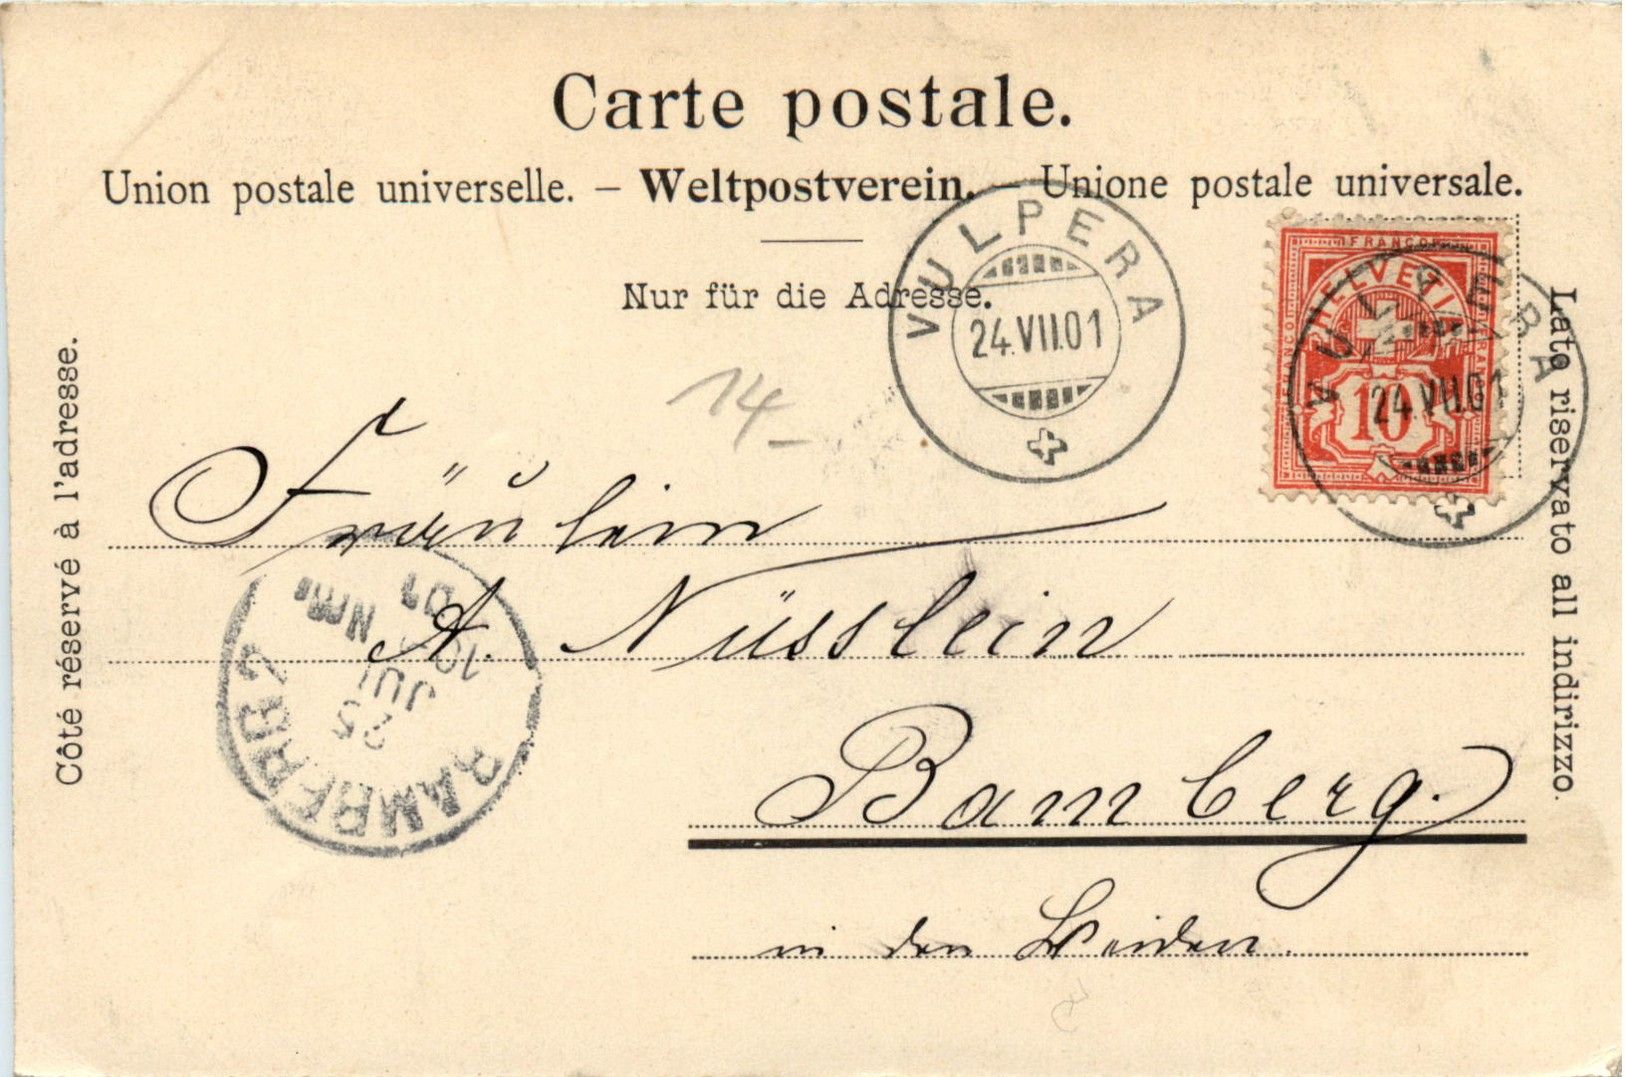 Carte postale.
Union postale universelle. – Weltpostverein. – Unione postale universale.
Nur für die Adresse.
Côté réservé à l'adresse.
Lato riservato all indirizzo.
VULPERA
24.VII.01
FRANCO
HELVETIA
FRANCO
10
VULPERA
24.VII.01
14-
Fräulein
A. Nüsslein
Bamberg.
in den Weiden.
BAMBERG 2
25
JUL
10
Nm
01